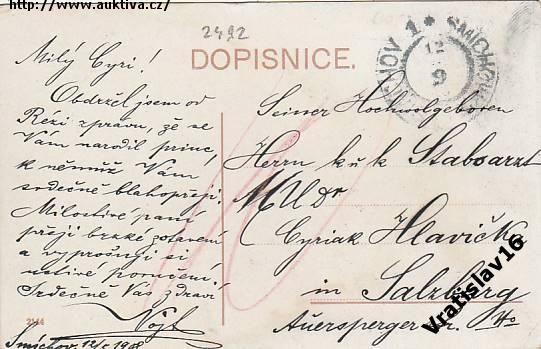 http://www.auktiva.cz/
2492
DOPISNICE.
SMÍCHOV 1 * SMICHOV
12
9
Milý Cyri!
Obdržel jsem od
Rezi zprávu, že se
Vám narodil princ,
k němuž Vám
srdečně blahopřeji.
Milostivé paní
přeji brzké zotavení
a vyprošuji si
uctivé poručení.
Srdečně Vás zdraví
Vojt
Smíchov, 12/5 1908
Seiner Hochwolgeboren
Herrn k u k Stabsarzt
MUDr
Cyriak Hlavička
in Salzburg
Auersperger
Vratislav16